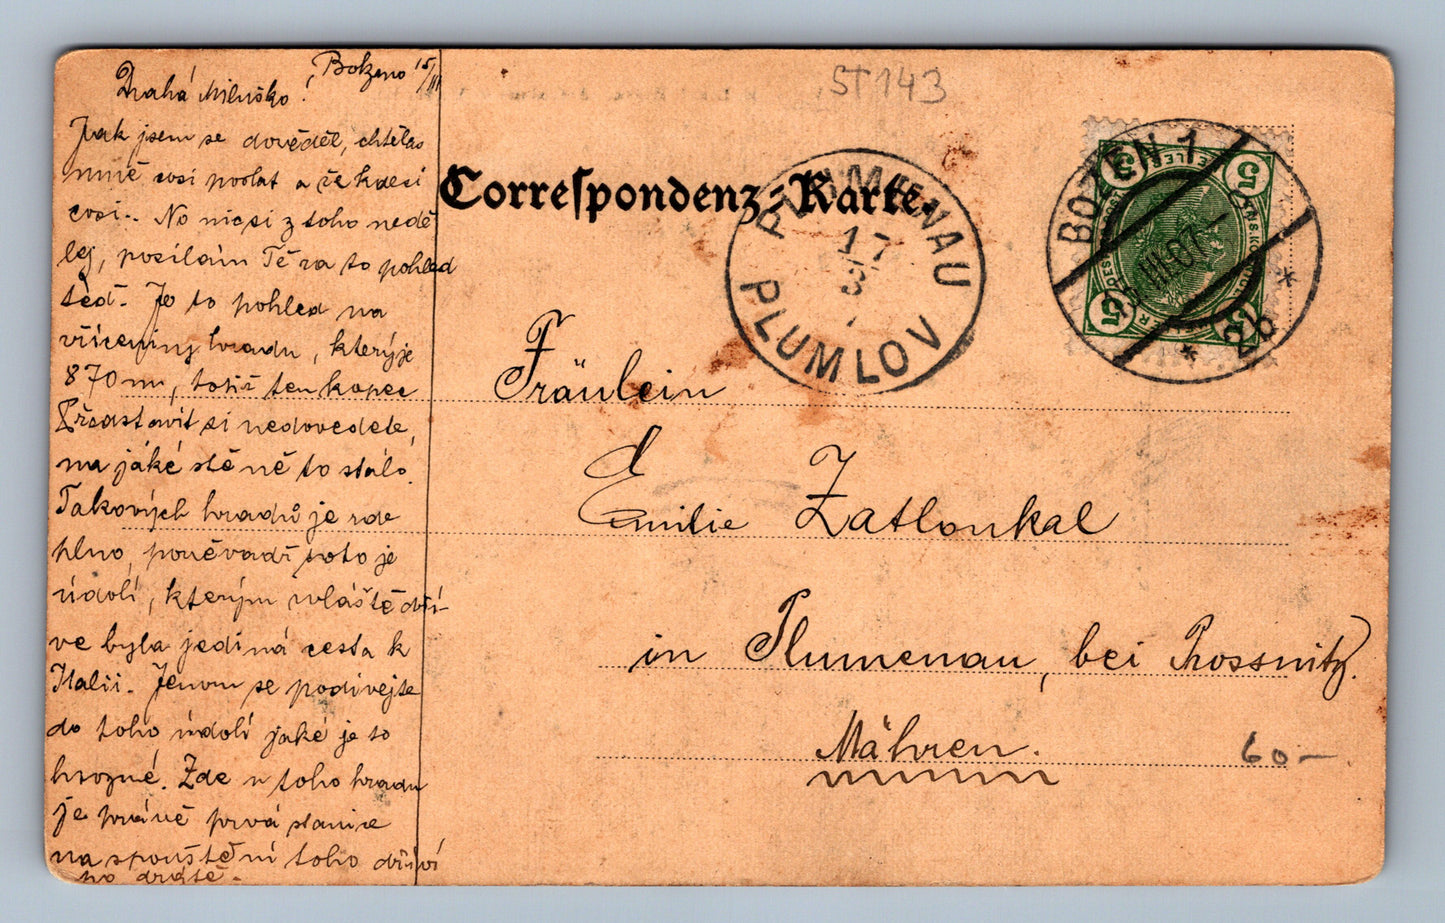 Bolzano 15/III
Drahá Miluško!
Jak jsem se dověděl, chtělas
mně cosi poslat a že kdesi
cosi.. No nic si z toho nedě
lej, posílám Tě za to pohled
teď. Je to pohled na
zříceniny hradu, který je
870 m, totiž ten kopec
Představit si nedovedete,
na jaké stěně to stálo.
Takových hradů je zde
plno, poněvadž toto je
údolí, kterým zvláště dří-
ve byla jediná cesta k
Italii. Jenom se podívejte
do toho údolí jaké je to
hrozné. Zde u toho hradu
je právě prvá stanice
na spouštění toho dříví
po drátě.
ST143
Correspondenz-Karte.
PLUMENAU
17
3
7
PLUMLOV
BOZEN 1
15.III.07
* 2b *
5 5
5 5
Fräulein
Emilie Zatloukal
in Plumenau, bei Prossnitz.
Mähren.
60-